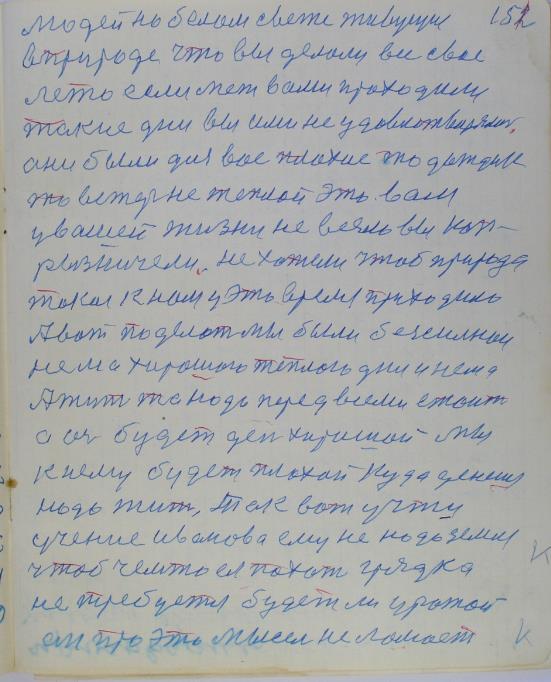 людей на белом свете живущие 152
в природе что вы делали в свое
лето если меж вами проходили
такие дни вы ими не удовлотварялис,
они были для вас плохие то дождик
то ветер не теплой это вам
у вашей жизни не везло вы кап-
рызничели, не хотели чтоб природа
такая к нам у это время приходила
А вот поделат мы были безсилнаи
нема хорошого тёплого дни и нема
А жит то надо перед всеми стоит
а он будет ден хорошой мы
к нему будет плохой куда денеш
надо жит, Так вот учти
учение иванова ему не надо земля
чтоб чемто ея пахат грядка
не требуется будет ли урожай
ои про это мысел не ломает